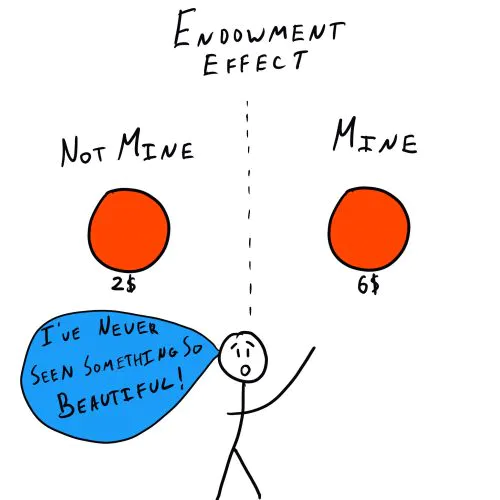 ENDOWMENT
EFFECT
NOT MINE
MINE
2$
6$
I'VE NEVER
SEEN SOMETHING SO
BEAUTIFUL!